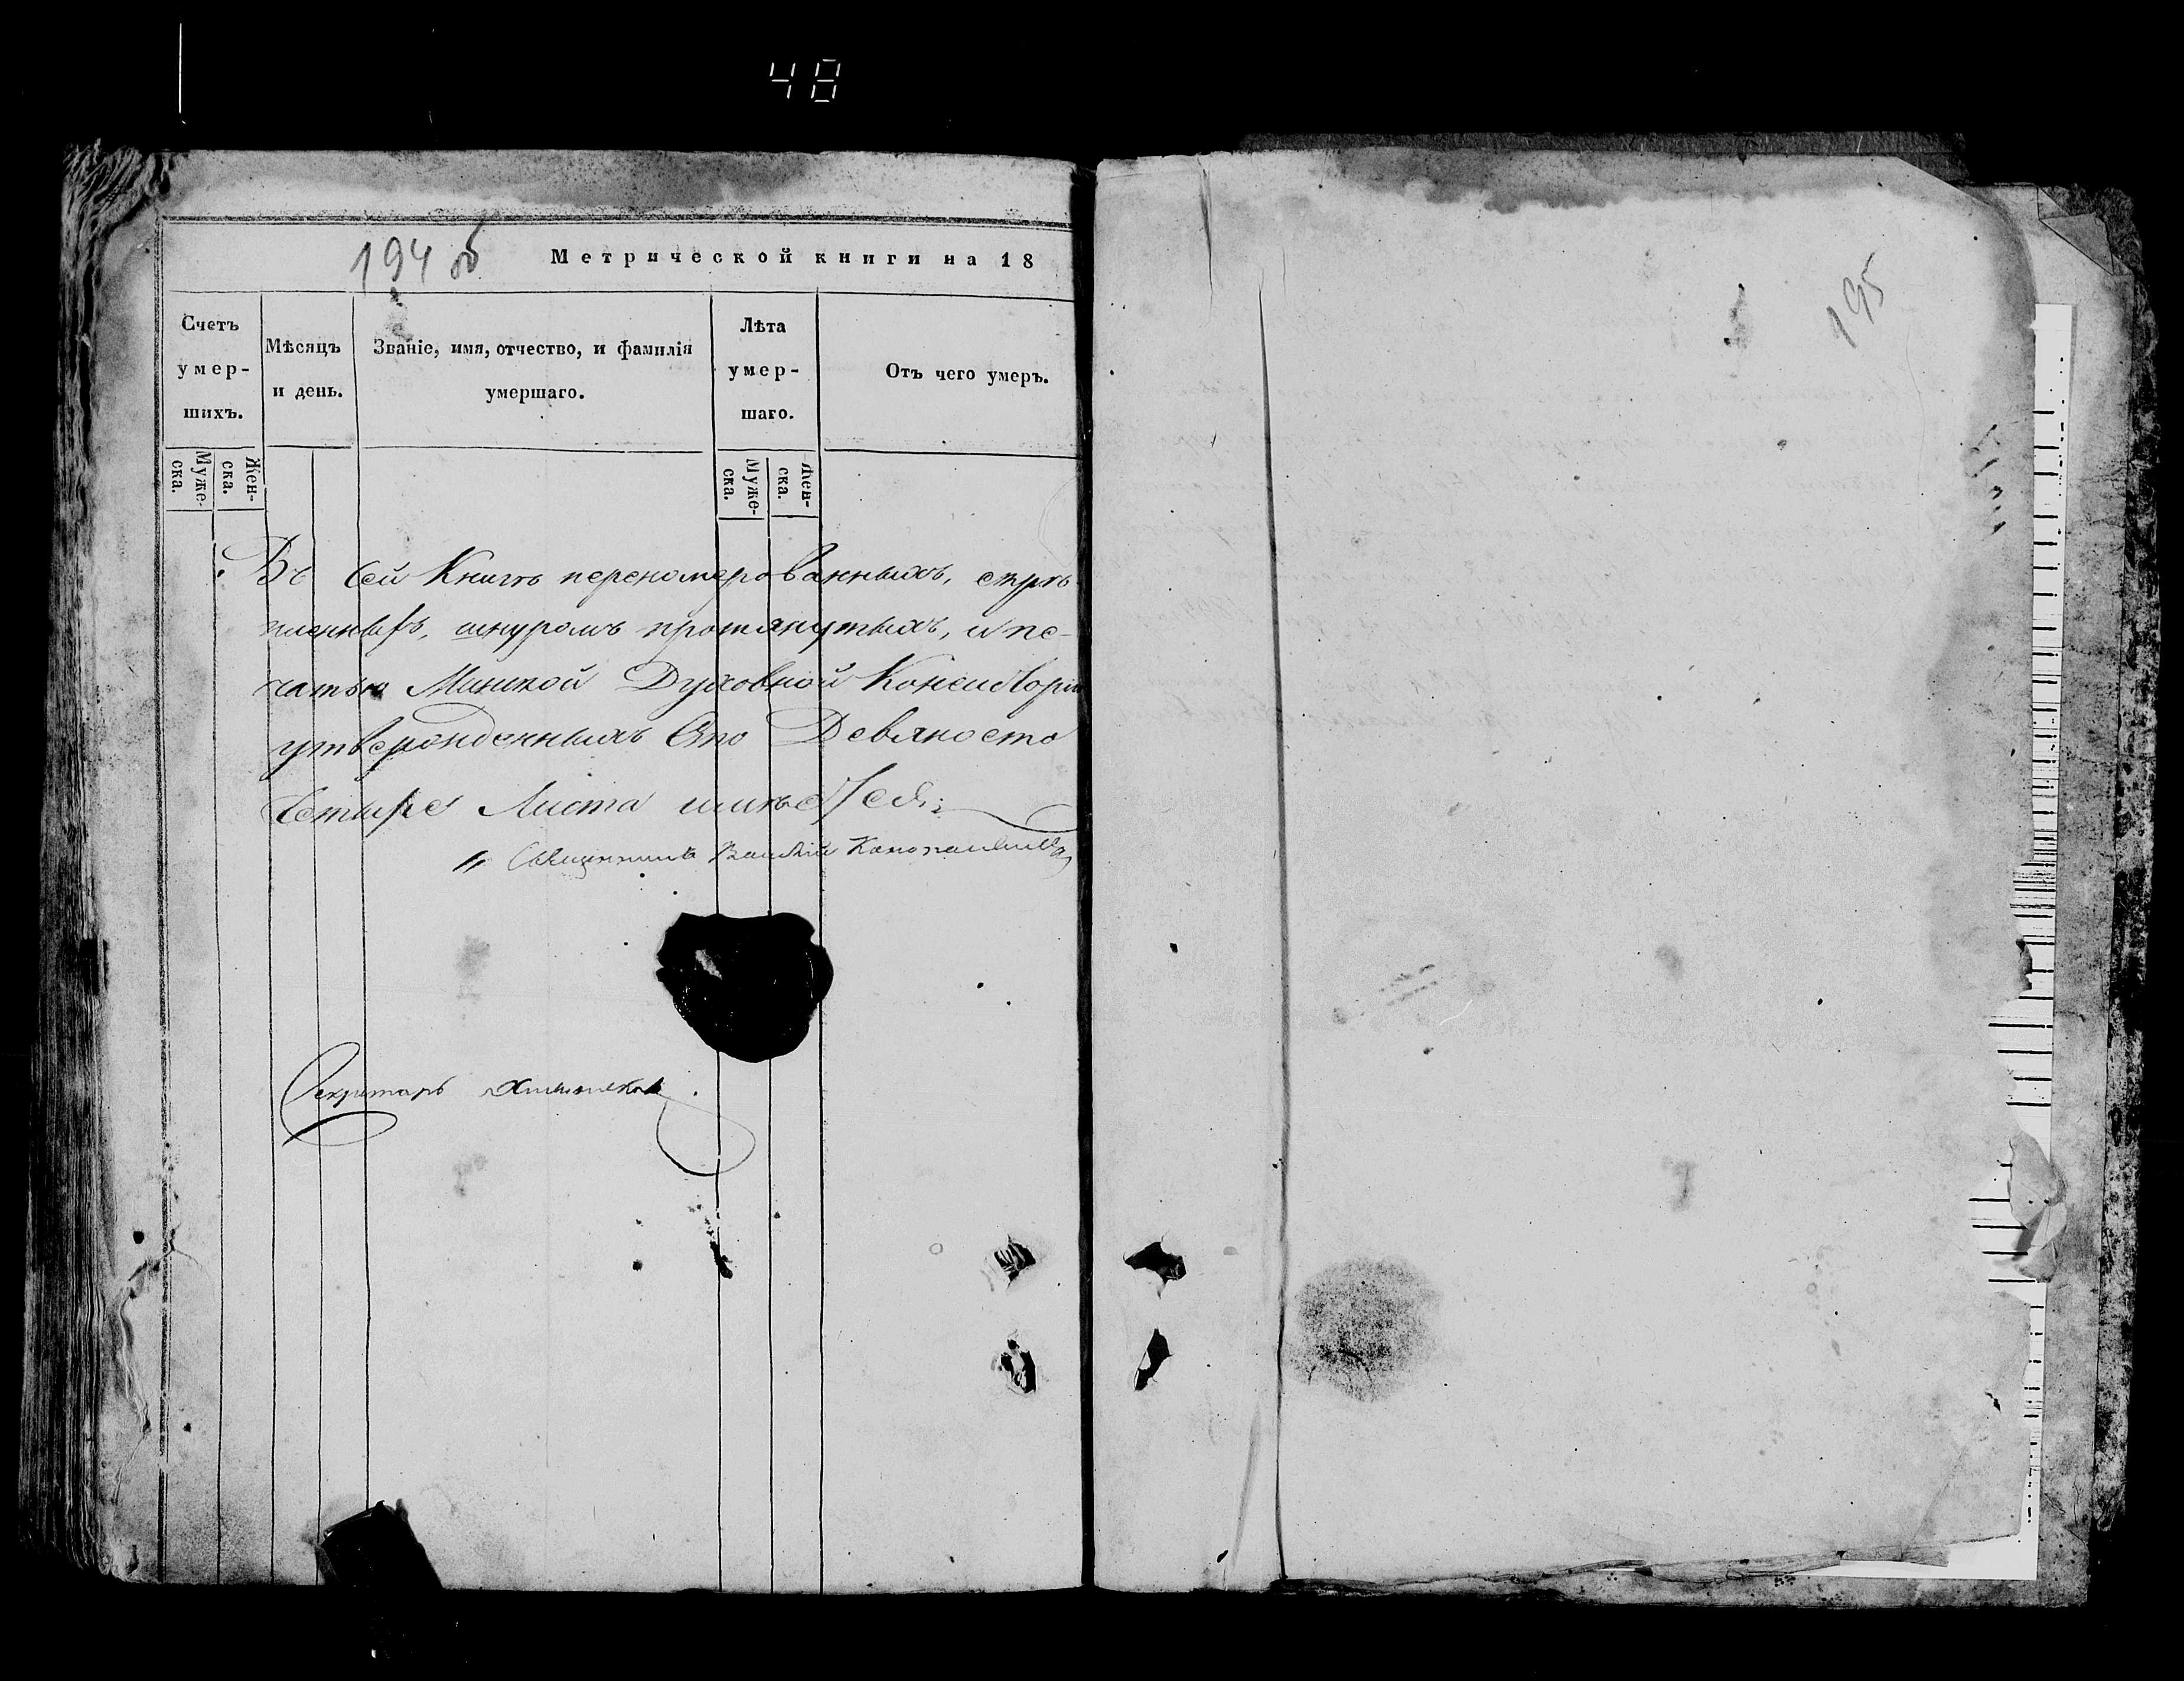 48
194 об
Метрической книги на 18
Счетъ умер-шихъ.
Мѣсяцъ и день.
Званіе, имя, отчество, и фамилія умершаго.
Лѣта умер-шаго.
Отъ чего умеръ.
Муже-ска.
Жен-ска.
Муже-ска.
Жен-ска.
Въ сей Книгѣ перенумерованныхъ, скрѣ-
пленныхъ, шнуромъ протянутыхъ, и пе-
чатью Минской Духовной Консисторіи
утвержденныхъ Сто Девяносто
Четыре Листа имѣется
Священникъ Василій
Секретарь
195